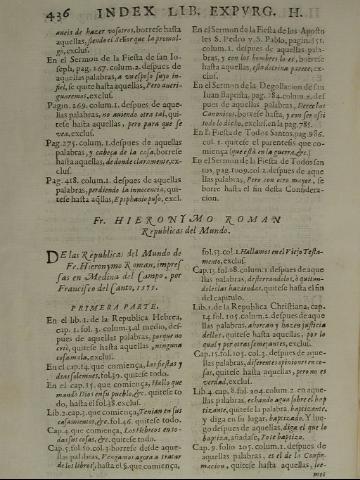 436 INDEX LIB. EXPVRG. H.
aueis de hazer vosotros, borrese hasta
aquellas, siendo el Señor que la promul-
go, exclus.
En el Sermon de la Fiesta de san Io-
seph, pag. 167. colum. 2. despues de
aquellas palabras, a vuesposo suyo in-
fiel, se quite hasta aquellas, Pero aueri-
guaremos, exclus.
Pagin. 269. colum. 1. despues de aque-
llas palabras, no auiendo otra tal, qui-
tese hasta aquellas, pero para que se
vea, exclus.
Pag. 275. colum. 1. despues de aquellas
palabras, y cabeça de la cosa, borrese
hasta aquellas, de donde claramente, ex-
clus.
Pag. 418. colum. 1. despues de aquellas
palabras, perdiendo la innocencia, qui-
tese hasta aq̃llas, Epiphanio puso, excl.
En el Sermon de la Fiesta de los Aposto
les S. Pedro y S. Pablo, pagin. 651.
colum. 1. despues de aquellas pala-
bras, y con los hombres lo es, borrese
hasta aquellas, esta doctrina parece, ex-
clus.
En el Sermon de la Degollacion de san
Iuan Baptista, pag. 784. colum. 2. des-
pues de aquellas palabras, Derecho
Canonico, borrese hasta, y con ser assi
todo lo dicho, exclus. en la pag. 785.
En la Fiesta de Todos Santos, pag. 986.
col. 1. quitese el parentesis que co-
miença, (que assi en la guerra, &c.)
En el Sermon de la Fiesta de Todos san
tos, pag. 1009. col. 2. despues de aque
llas palabras, Pero con otro no que, se
borre hasta el fin desta Considera-
cion.
Fr. HIERONYMO ROMAN
Republicas del Mundo.
DE las Republicas del Mundo de
Fr. Hieronymo Roman, impres-
sas en Medina del Campo, por
Francisco del Canto, 1575.
PRIMERA PARTE.
En el lib. 1. de la Republica Hebrea,
cap. 1. fol. 3. colum. 3. al medio, des-
pues de aquellas palabras, porque no
creí, quitese hasta aquellas, y ninguna
cosa mala, exclus.
En el cap. 14. que comiença, las fiestas y
dias solemnes, fol. 30. quitese todo.
En el cap. 15. que comiença, Halla que
mandò Dios en su pueblo, &c. quitese to
do, hasta el fol. 38. exclus.
Lib. 2. cap. 3. que comiença, Tenian en sus
casamientos, &c. fol. 46. quitese todo.
Cap. 4. que comiença, Los Hebreos en to-
das sus cosas, &c. quitese todo.
Cap. 5. fol. 50. col. 3. borrese desde aque-
llas palabras, Vengamos agora a tratar
de los libros, hasta el §. que comiença,
fol. 53. col. 1. Hallamos en el Viejo Testa-
mento, exclus.
Cap. 15. fol. 78. colum. 1. despues de aque
llas palabras, desterrandolos, quitan-
doles las haziendas, quitese hasta el fin
del capitulo.
Lib. 1. de la Republica Christiana, cap.
14. fol. 105. colum. 2. despues de aque
llas palabras, ahorcan y hazen justicia
dellos, quitese hasta aquellas, por lo
qual y por otras semejantes, exclus.
Cap. 15. fol. 103. col. 3. despues de aque-
llas palabras, diferentes opiniones en co-
sas, quitese hasta aquellas, pero mas es
verdad, exclus.
Lib. 4. cap. 8. fol. 204. colum. 2. en aque-
llas palabras, echando agua sobre el bap
tizante, quitese la palabra, baptizante,
y diga en su lugar, baptizado. Y lue-
go despues de aquellas, diga el que lo
baptiza, añadase, Yo te baptizo.
Cap. 9. folio 205. colum. 1. despues de
aquellas palabras, el de la Confir-
macion, quitese hasta aquellas, lee-
mos